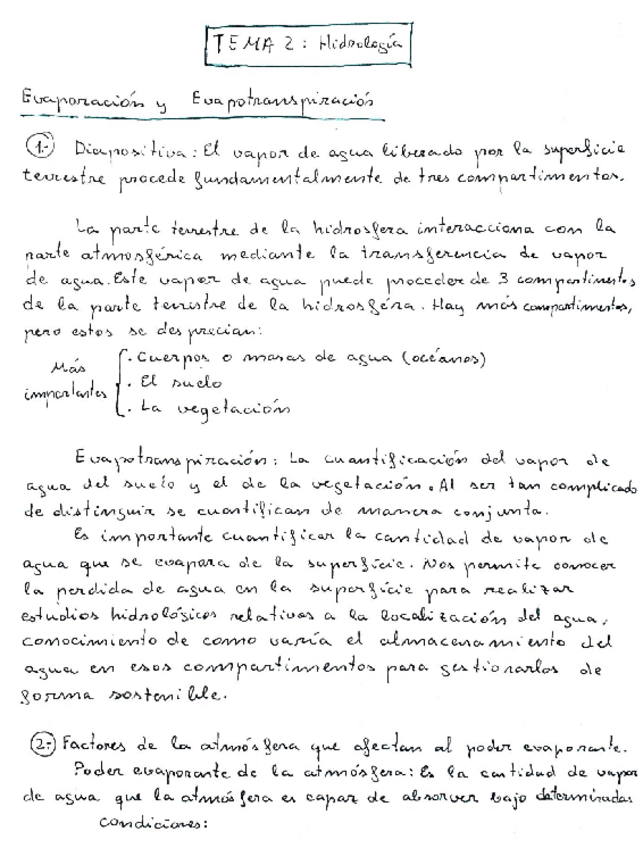 TEMA 2: Hidrología
Evaporación y Evapotranspiración
1.- Diapositiva: El vapor de agua liberado por la superficie
terrestre procede fundamentalmente de tres compartimentos.
La parte terrestre de la hidrosfera interacciona con la
parte atmosférica mediante la transferencia de vapor
de agua. Este vapor de agua puede proceder de 3 compartimentos
de la parte terrestre de la hidrosfera. Hay más compartimentos,
pero estos se desprecian:
Más importantes
· Cuerpos o masas de agua (océanos)
· El suelo
· La vegetación
Evapotranspiración: La cuantificación del vapor de
agua del suelo y el de la vegetación. Al ser tan complicado
de distinguir se cuantifican de manera conjunta.
Es importante cuantificar la cantidad de vapor de
agua que se evapora de la superficie. Nos permite conocer
la perdida de agua en la superficie para realizar
estudios hidrológicos relativos a la localización del agua,
conocimiento de como varía el almacenamiento del
agua en esos compartimentos para gestionarlos de
forma sostenible.
2.- Factores de la atmósfera que afectan al poder evaporante.
Poder evaporante de la atmósfera: Es la cantidad de vapor
de agua que la atmósfera es capaz de absorver bajo determinadas
condiciones: